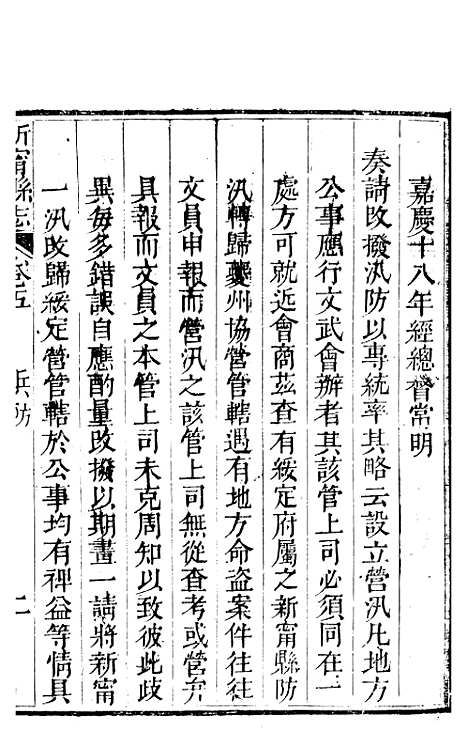 嘉慶十八年經總督常明
奏請改撥汛防以專統率其略云設立營汛凡地方
公事應行文武會辦者其該管上司必須同在一
處方可就近會商茲查有綏定府屬之新甯縣防
汛轉歸夔州協營管轄遇有地方命盜案件往往
文員申報而營汛之該管上司無從查考或營弁
具報而文員之本管上司未克周知以致彼此歧
異每多錯誤自應酌量改撥以期畫一請將新甯
一汛改歸綏定營管轄於公事均有裨益等情具
新甯縣志 卷五 兵防 二